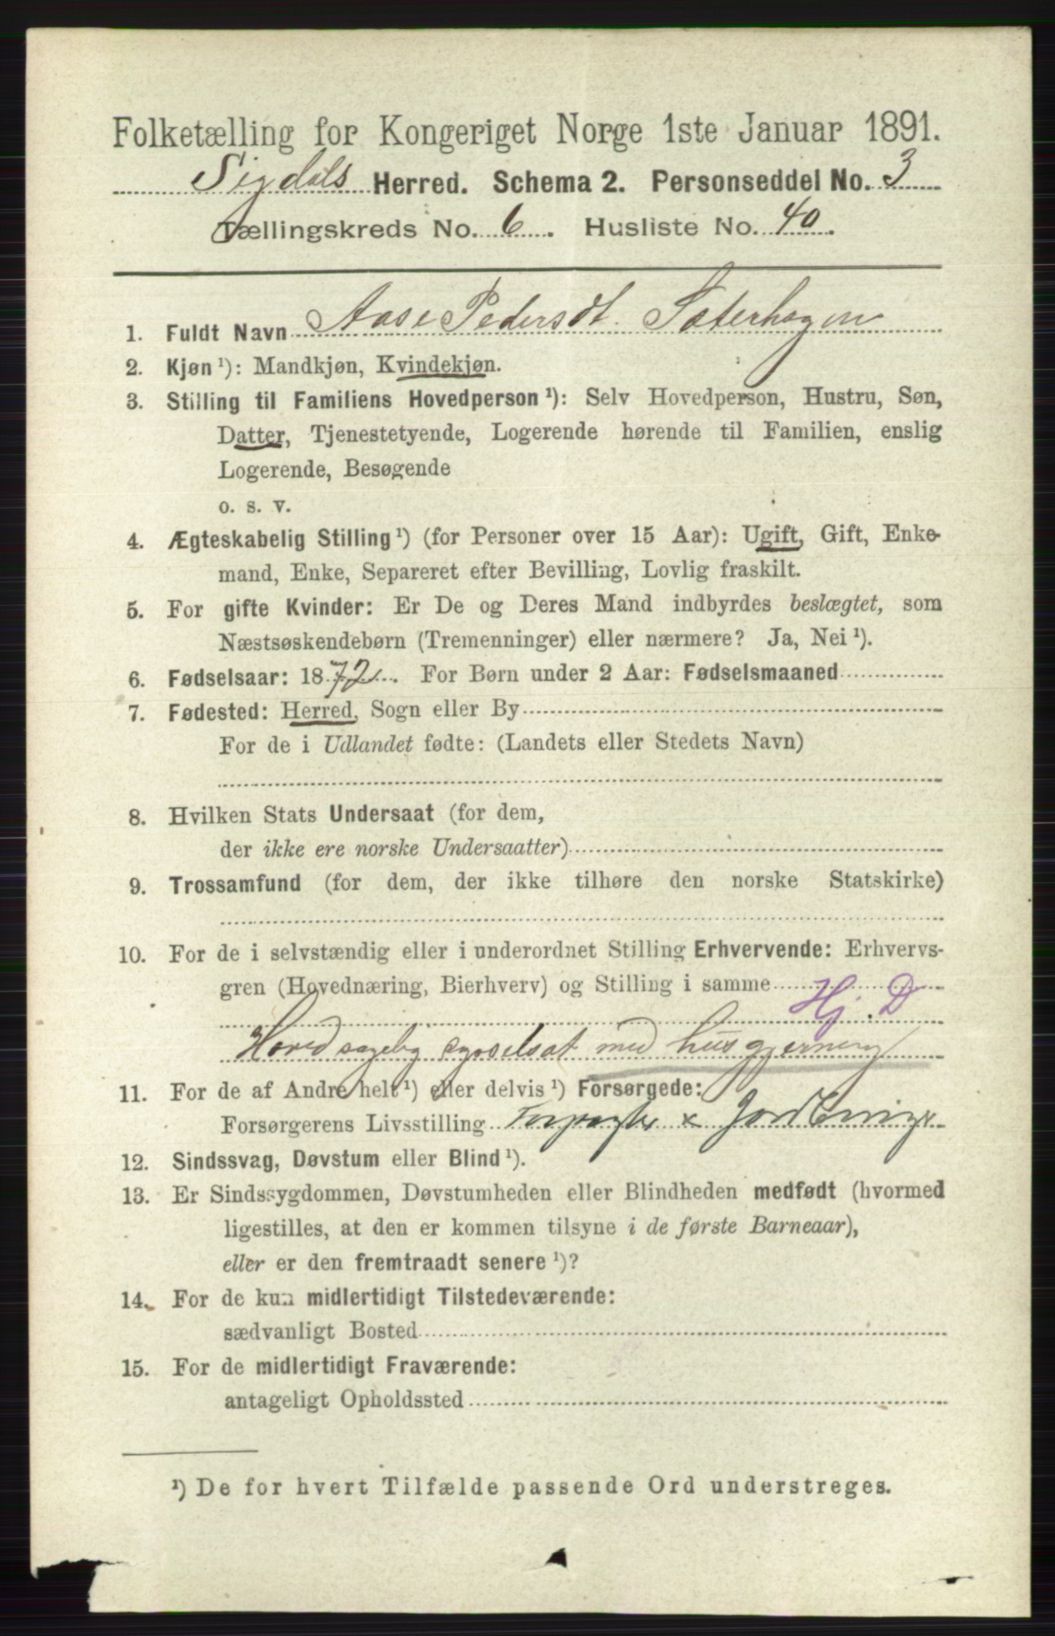 Folketælling for Kongeriget Norge 1ste Januar 1891.
Sigdals Herred. Schema 2. Personseddel No. 3
Tællingskreds No. 6. Husliste No. 40.
1. Fuldt Navn Aase Pedersdt. Sæterhagen
2. Kjøn ¹): Mandkjøn, Kvindekjøn.
3. Stilling til Familiens Hovedperson ¹): Selv Hovedperson, Hustru, Søn,
Datter, Tjenestetyende, Logerende hørende til Familien, enslig
Logerende, Besøgende
o. s. v.
4. Ægteskabelig Stilling ¹) (for Personer over 15 Aar): Ugift, Gift, Enke-
mand, Enke, Separeret efter Bevilling, Lovlig fraskilt.
5. For gifte Kvinder: Er De og Deres Mand indbyrdes beslægtet, som
Næstsøskendebørn (Tremenninger) eller nærmere? Ja, Nei ¹).
6. Fødselsaar: 1872. For Børn under 2 Aar: Fødselsmaaned
7. Fødested: Herred, Sogn eller By
For de i Udlandet fødte: (Landets eller Stedets Navn)
8. Hvilken Stats Undersaat (for dem,
der ikke ere norske Undersaatter)
9. Trossamfund (for dem, der ikke tilhøre den norske Statskirke)
10. For de i selvstændig eller i underordnet Stilling Erhvervende: Erhvervs-
gren (Hovednæring, Bierhverv) og Stilling i samme
Hj. D
Hovedsagelig sysselsat med husgjerning
11. For de af Andre helt ¹) eller delvis ¹) Forsørgede:
Forsørgerens Livsstilling
12. Sindssvag, Døvstum eller Blind ¹).
13. Er Sindssygdommen, Døvstumheden eller Blindheden medfødt (hvormed
ligestilles, at den er kommen tilsyne i de første Barneaar),
eller er den fremtraadt senere ¹)?
14. For de kun midlertidigt Tilstedeværende:
sædvanligt Bosted
15. For de midlertidigt Fraværende:
antageligt Opholdssted
¹) De for hvert Tilfælde passende Ord understreges.